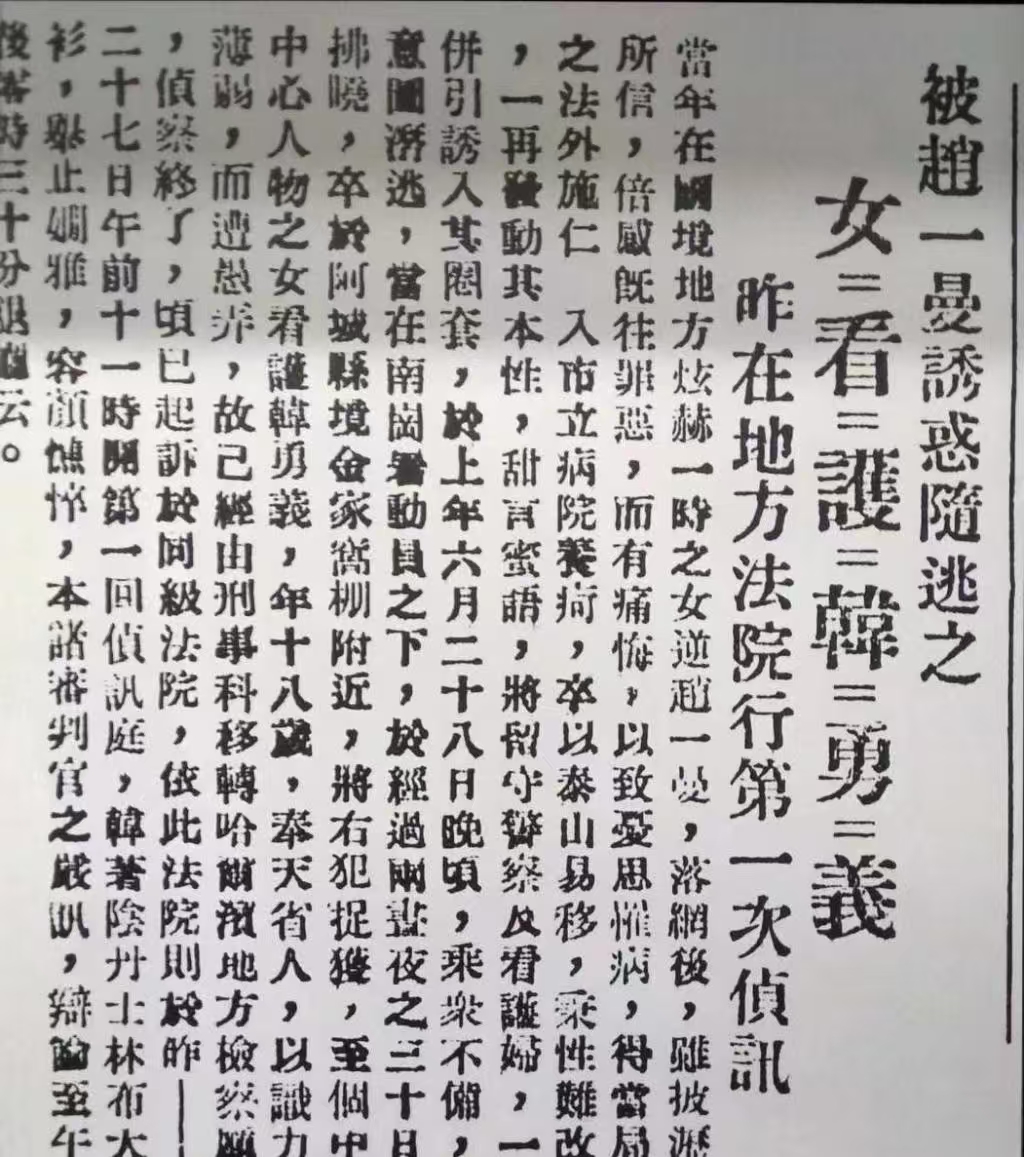 被趙一曼誘惑隨逃之
女=看=護=韓=勇=義
昨在地方法院行第一次偵訊
當年在國境地方炫赫一時之女逆趙一曼，落網後，雖披瀝
所信，倍感既往罪惡，而有痛悔，以致憂思懼病，得當局
之法外施仁　入市立病院養疴，卒以泰山易移，秉性難改
，一再發動其本性，甜言蜜語，將留守警察及看護婦，一
併引誘入其圈套，於上年六月二十八日晚頃，乘衆不備，
意圖潛逃，當在南崗署動員之下，於經過兩晝夜之三十日
拂曉，卒於阿城縣境金家窩棚附近，將右犯捉獲，至個中
中心人物之女看護韓勇義，年十八歲，奉天省人，以識力
薄弱，而遭愚弄，故已經由刑事科移轉哈爾濱地方檢察廳
，偵察終了，頃已起訴於同級法院，依此法院則於昨——
二十七日午前十一時開第一回偵訊庭，韓著陰丹士林布大
衫，舉止嫻雅，容顏憔悴，本諸審判官之嚴訊，辯論至午
後零時三十分退廳云。